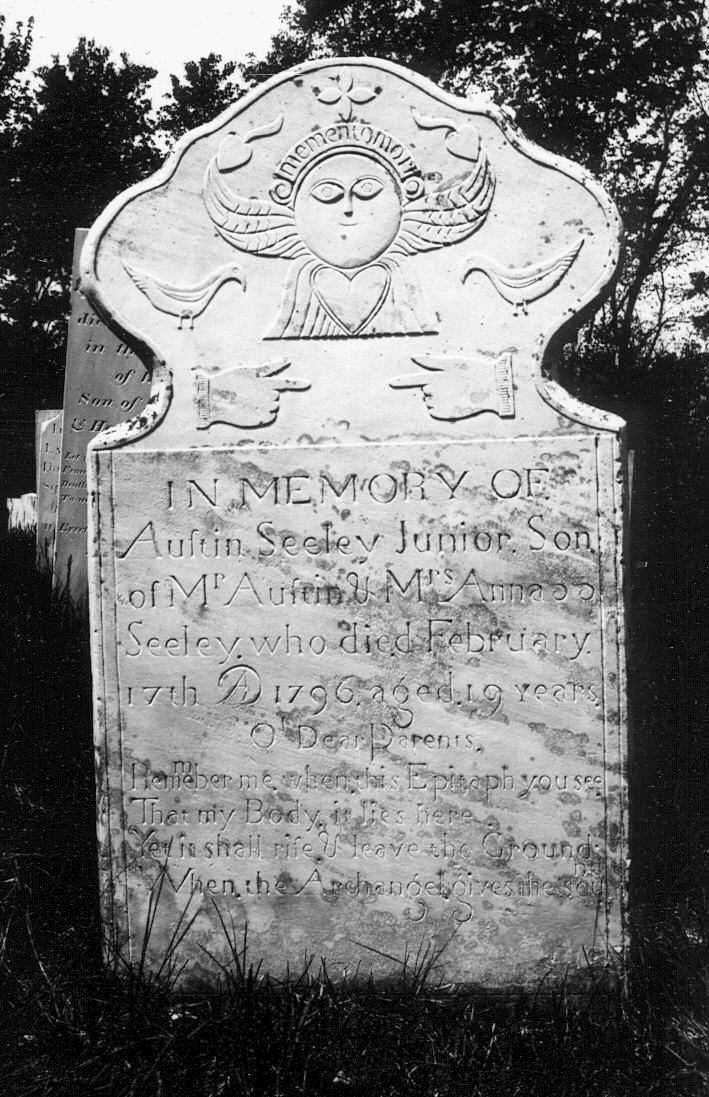 mementomori
IN MEMORY OF
Auſtin Seeley Junior, Son
of Mr Auſtin & Mrs Anna
Seeley, who died February,
17th AD 1796, aged, 19 years,
O Dear Parents,
Remember me, when this Epitaph you see
That my Body, it lies here
Yet it shall riſe & leave the Ground
When, the Archangel, gives the sound
in
of
Son of
&